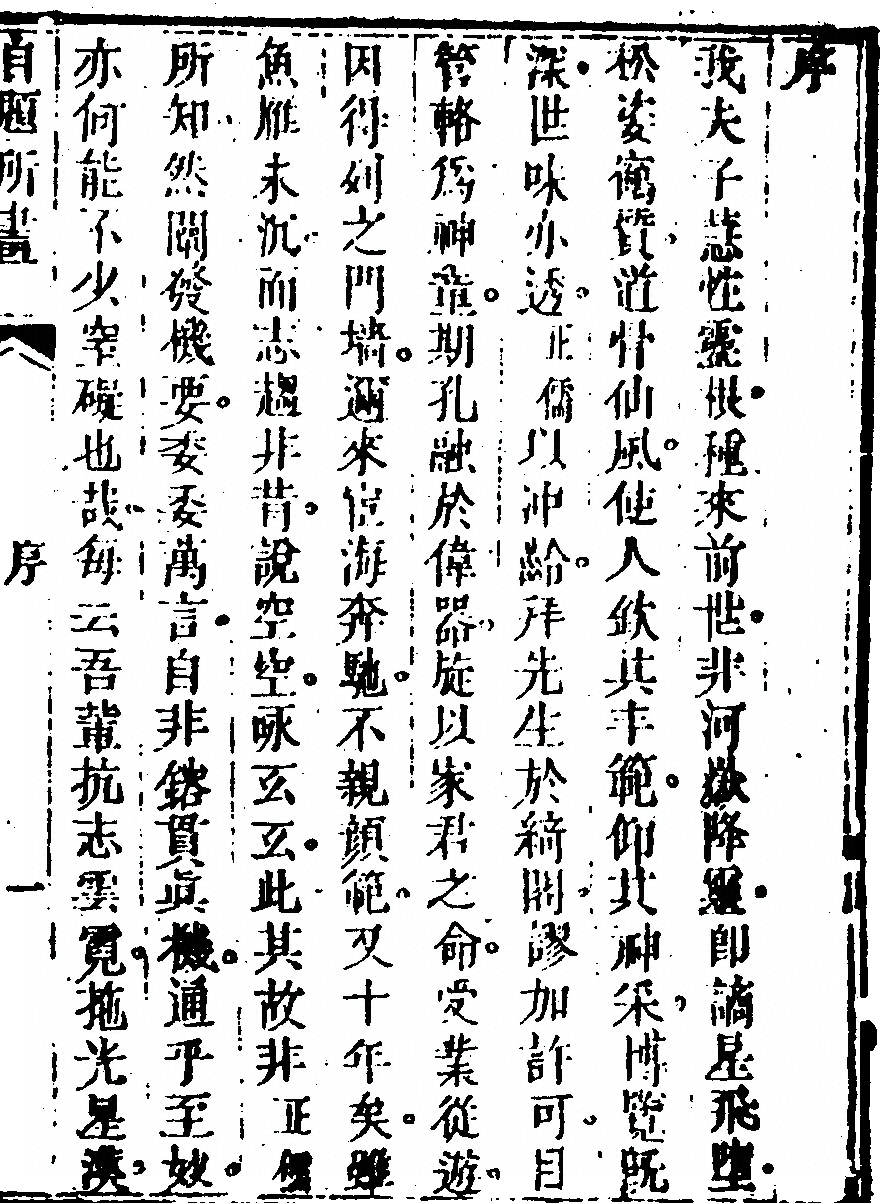 序
我夫子慧性靈根。種來前世。非河嶽降靈。即謫星飛墮。
松姿寫質。道骨仙風。使人欽其丰範。仰其神采。博覽既
深。世味亦透。正儒以冲齡。拜先生於綺閣。謬加許可。目
管輅爲神童。期孔融於偉器。旋以家君之命。受業從遊。
因得列之門墻。邇來宦海奔馳。不親顔範。又十年矣。雖
魚雁未沉。而志趨非昔。說空空。咏玄玄。此其故非正儒
所知。然闡發機要。娄娄萬言。自非鎔貫眞機。通乎至妙。
亦何能不少窒礙也哉。每云吾輩抗志雲霓。拖光星漢。
自題所畫
序
一